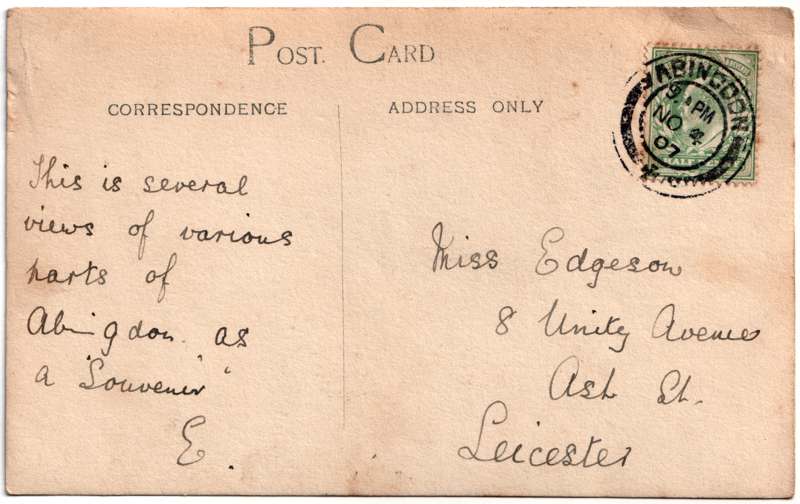 POST CARD
CORRESPONDENCE
ADDRESS ONLY
ABINGDON
PM
NO 4
07
This is several
views of various
parts of
Abingdon as
a "Souvenir"
E.
Miss Edgeson
8 Unity Avenue
Ash St.
Leicester